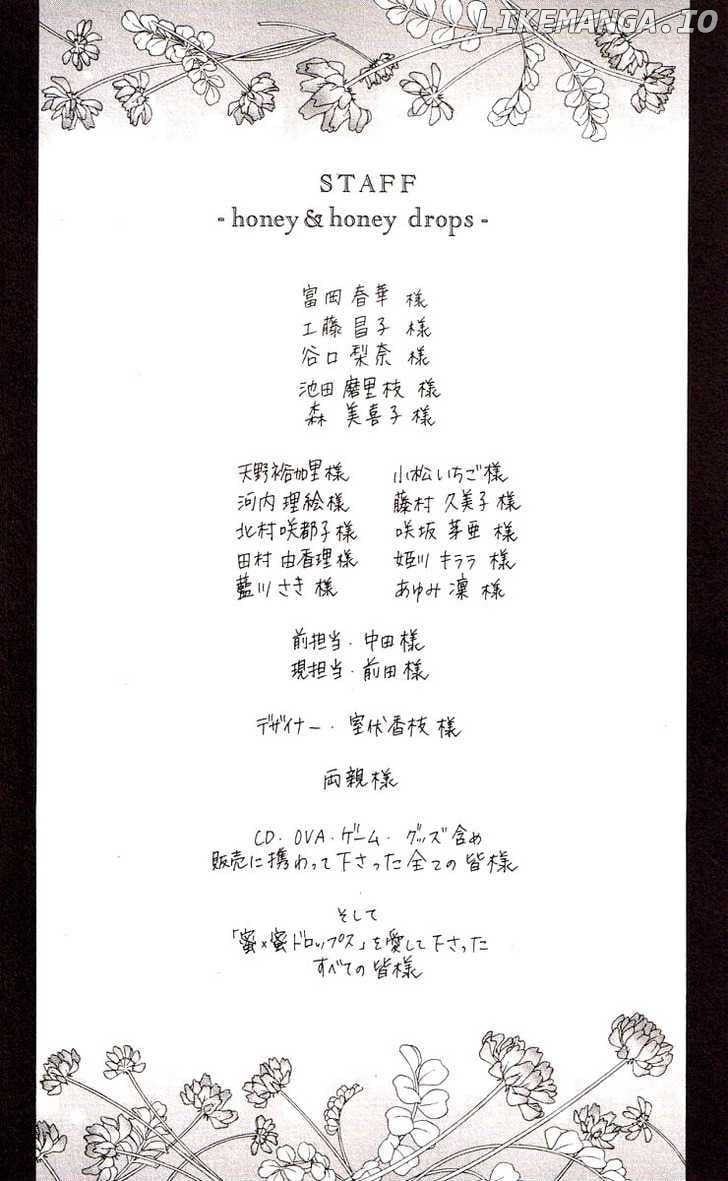 LIKEMANGA.IO
STAFF
- honey & honey drops -
富岡 春華 様
工藤 昌子 様
谷口 梨奈 様
池田 磨里枝 様
森 美喜子 様
天野裕加里様 小松いちご様
河内 理絵様 藤村 久美子 様
北村咲都子様 咲坂 芽亜 様
田村 由香理様 姫川 キララ 様
藍川 さき 様 あゆみ 凛 様
前担当・中田様
現担当・前田様
デザイナー・室伏香枝 様
両親様
CD・OVA・ゲーム・グッズ含め
販売に携わって下さった全ての皆様
そして
「蜜×蜜ドロップス」を愛して下さった
すべての皆様